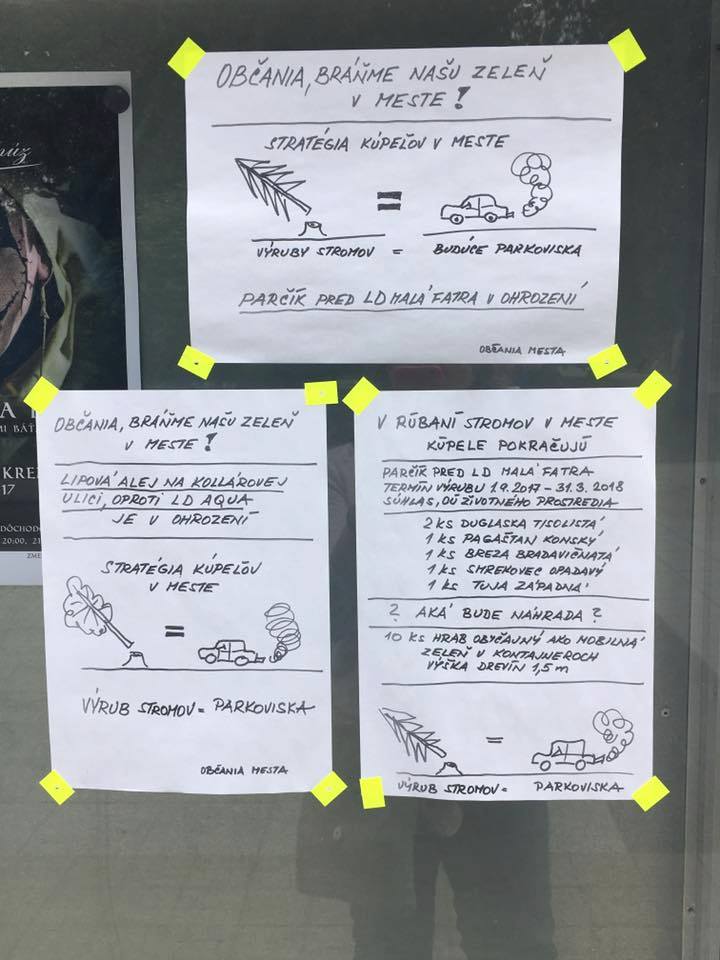 OBČANIA, BRÁŇME NAŠU ZELEŇ
V MESTE!
STRATÉGIA KÚPEĽOV V MESTE
=
VÝRUBY STROMOV = BUDÚCE PARKOVISKA
PARČÍK PRED LD MALÁ FATRA V OHROZENÍ
OBČANIA MESTA
OBČANIA, BRÁŇME NAŠU ZELEŇ
V MESTE!
LIPOVÁ ALEJ NA KOLLÁROVEJ
ULICI, OPROTI LD AQUA
JE V OHROZENÍ
STRATÉGIA KÚPEĽOV
V MESTE
=
VÝRUB STROMOV = PARKOVISKA
OBČANIA MESTA
V RÚBANÍ STROMOV V MESTE
KÚPELE POKRAČUJÚ
PARČÍK PRED LD MALÁ FATRA
TERMÍN VÝRUBU 1.9.2017 – 31.3.2018
SÚHLAS, OÚ ŽIVOTNÉHO PROSTREDIA
2 KS DUGLASKA TISOLISTÁ
1 KS PAGAŠTAN KONSKÝ
1 KS BREZA BRADAVIČNATÁ
1 KS SMREKOVEC OPADAVÝ
1 KS TUJA ZÁPADNÁ
? AKÁ BUDE NÁHRADA ?
10 KS HRAB OBYČAJNÝ AKO MOBILNÁ
ZELEŇ V KONTAJNEROCH
VÝŠKA DREVÍN 1,5 m
=
VÝRUB STROMOV = PARKOVISKA
KRE
17
20:00, 21